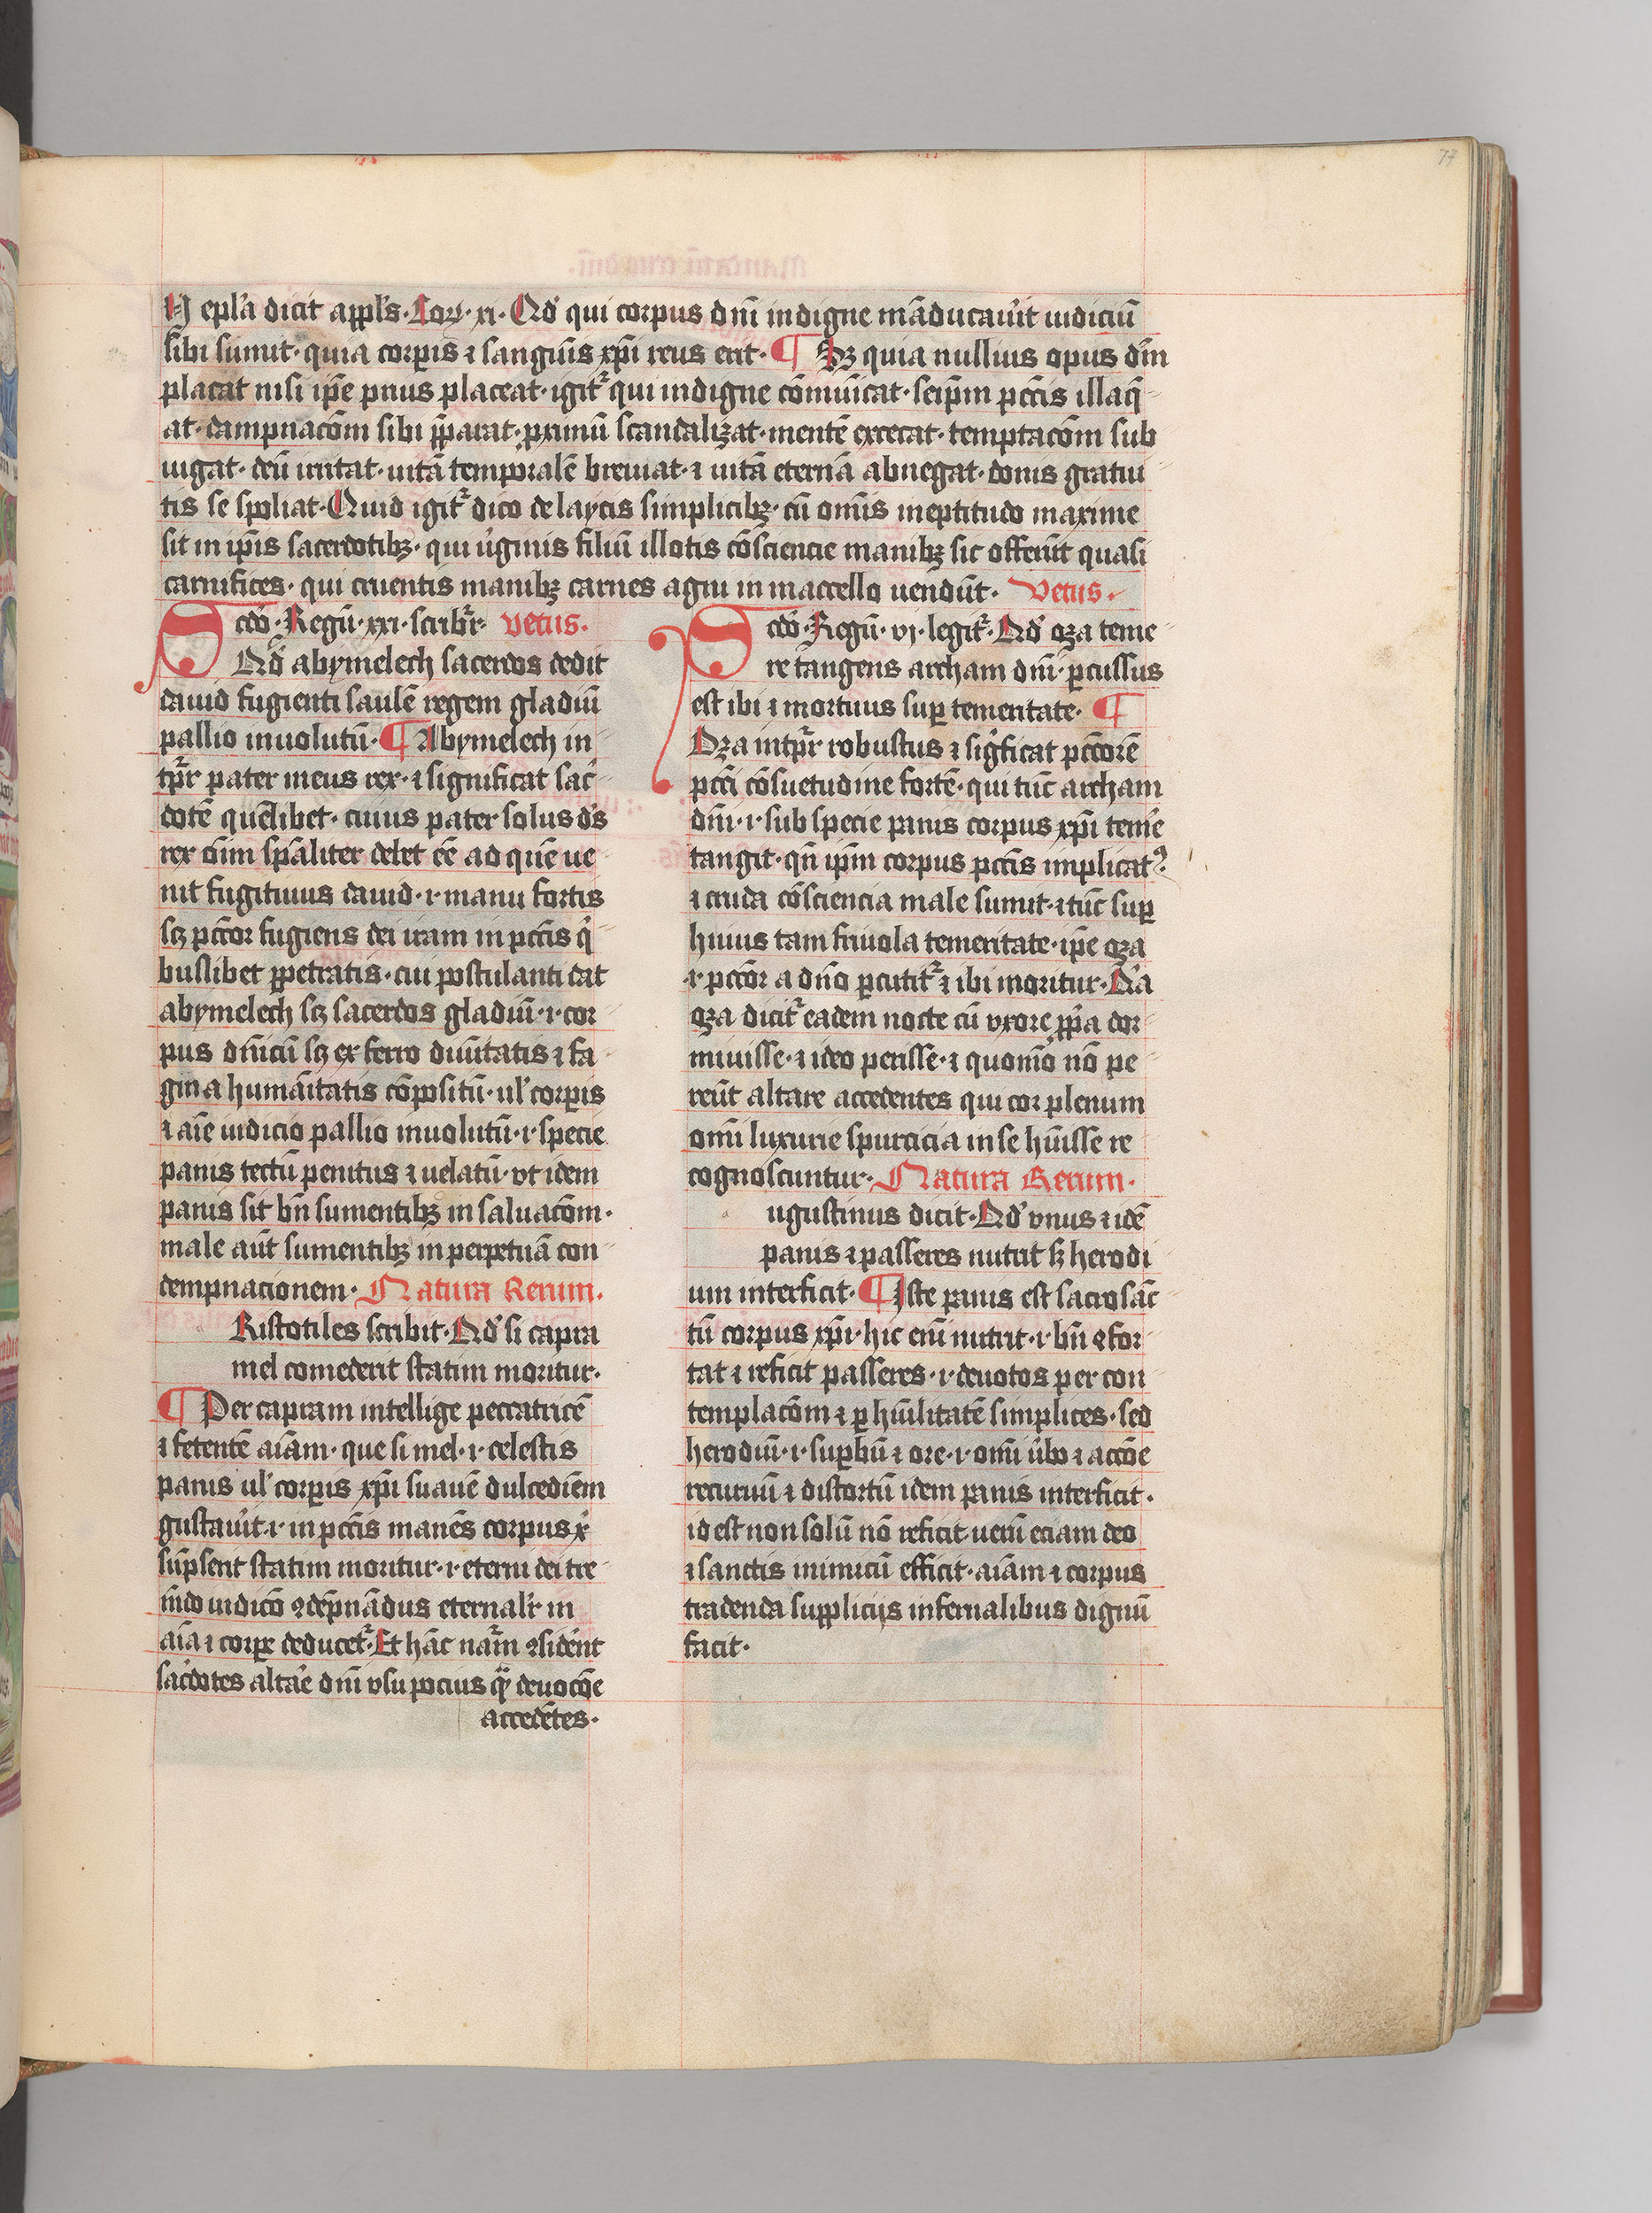 77
N epl'a dicit appl's · Cor · xi · Qd' qui corpus dn̄i indigne māducau'it iudiciū
sibi sumit · quia corp̲is ⁊ sanguīs xp̄i reus erit · ¶ Sꝫ quia nullius opus dīn
placat nisi ip̄e prius placeat · igit᷑ qui indigne cōmūicat · seip̄m pc̄cis illaq̄
at · dampnacōm sibi p̄parat · ꝓximū scandalizat · mentē excecat · temptacōm sub
iugat · deū irritat · uitā temporalē breuiat · ⁊ uitā eternā abnegat · donis gratui
tis se spoliat · Quid igit᷑ dico de laycis simplicibꝫ · cū om̄is ineptitudo maxime
sit in ip̄is sacerdotibꝫ · qui u'ginis filiū illotis cōsciencie manibꝫ sic offerūt quasi
carnifices · qui cruentis manibꝫ carnes agni in maccello uendūt · Vetus ·
Scdō · Regū · xxi · scribr̄ · Vetus ·
Qd' abymelech sacerdos dedit
dauid fugienti saulē regem gladiū
pallio inuolutū · ¶ Abymelech in
tp̲r̄ pater meus rex · ⁊ significat sac'
dotē quēlibet · cuius pater solus d's
rex oīm sp̄aliter debet eē ad quē ue
nit fugitiuus dauid · i · manu fortis
scꝫ pc̄cor fugiens dei iram in pc̄cis q'
buslibet ꝑpetratis · cui postulanti dat
abymelech scꝫ sacerdos gladiū · i · cor
pus dn̄icū scꝫ ex ferro diuītatis ⁊ fa
gina humāitatis cōpositū · ul' corp̲is
⁊ aīe iudicio pallio inuolutū · i · specie
panis tectū penitus ⁊ uelatū · vt idem
panis sit bn̄ sumentibꝫ in saluacōm ·
male aūt sumentibꝫ in perpetuā con
dempnacionem · Natura Rerum ·
Ristotiles scribit · Qd' si capra
mel comederit statim moritur ·
¶ Per capram intellige peccatricē
⁊ fetentē aīam · que si mel · i · celestis
panis ul' corp̲is xp̄i suauē dulcedīem
gustau'it · i · in pc̄cis manēs corpus x'
sūpserit statim moritur · i · eterni dei tre
mēdo iudicō ꝯdēpnādus eternalr̄ in
aīa ⁊ corp̲e deducet᷑ · Et hāc nar̄m ꝯsid'ent
sac'dotes altar'e dn̄i vsu pocius q̄ deuocōe
accedētes ·
Scdō · Regū · vj · legit᷑ · Qd' oza teme
re tangens archam dn̄i · ꝑcussus
est ibi ⁊ mortuus sup̲ temeritate · ¶
Oza intp̲r̄ robustus ⁊ sig'ficat pc̄corē
pc̄ci cōsuetudine fortē · qui tūc archam
dn̄i · i · sub specie panis corpus xp̄i tem'e
tangit · qn̄ ip̄m corpus pc̄cis implicatꝰ
⁊ cruda cōsciencia male sumit · ⁊ tūc sup̲
huius tam friuola temeritate · ip̄e oza
· i · pc̄cor a dn̄o ꝑcutit᷑ ⁊ ibi moritur · Nā
oza dicit᷑ eadem nocte cū vxore ꝓp̄a dor
miuisse · ⁊ ideo perisse · ⁊ quomō nō pe
reūt altare accedentes qui cor plenum
om̄i luxurie spurcicia in se hūisse re
cognoscuntur · Natura Rerum ·
ugustinus dicit · Qd' vnus ⁊ idē
panis ⁊ passeres nutrit sꝫ herodi
um interficit · ¶ Iste panis est sacrosāc
tū corpus xp̄i · hic enī nutrit · i · bn̄ ꝯfor
tat ⁊ reficit passeres · i · deuotos per con
templacōm ⁊ ꝑ hūilitatē simplices · sed
herodiū · i · sup̲bū ⁊ ore · i · om̄i u'bo ⁊ accōe
recuruū ⁊ distortū idem panis interficit ·
id est non solū nō reficit uerū eciam deo
⁊ sanctis inimicū efficit · aīam ⁊ corpus
tradenda supplicijs infernalibus dignū
facit ·